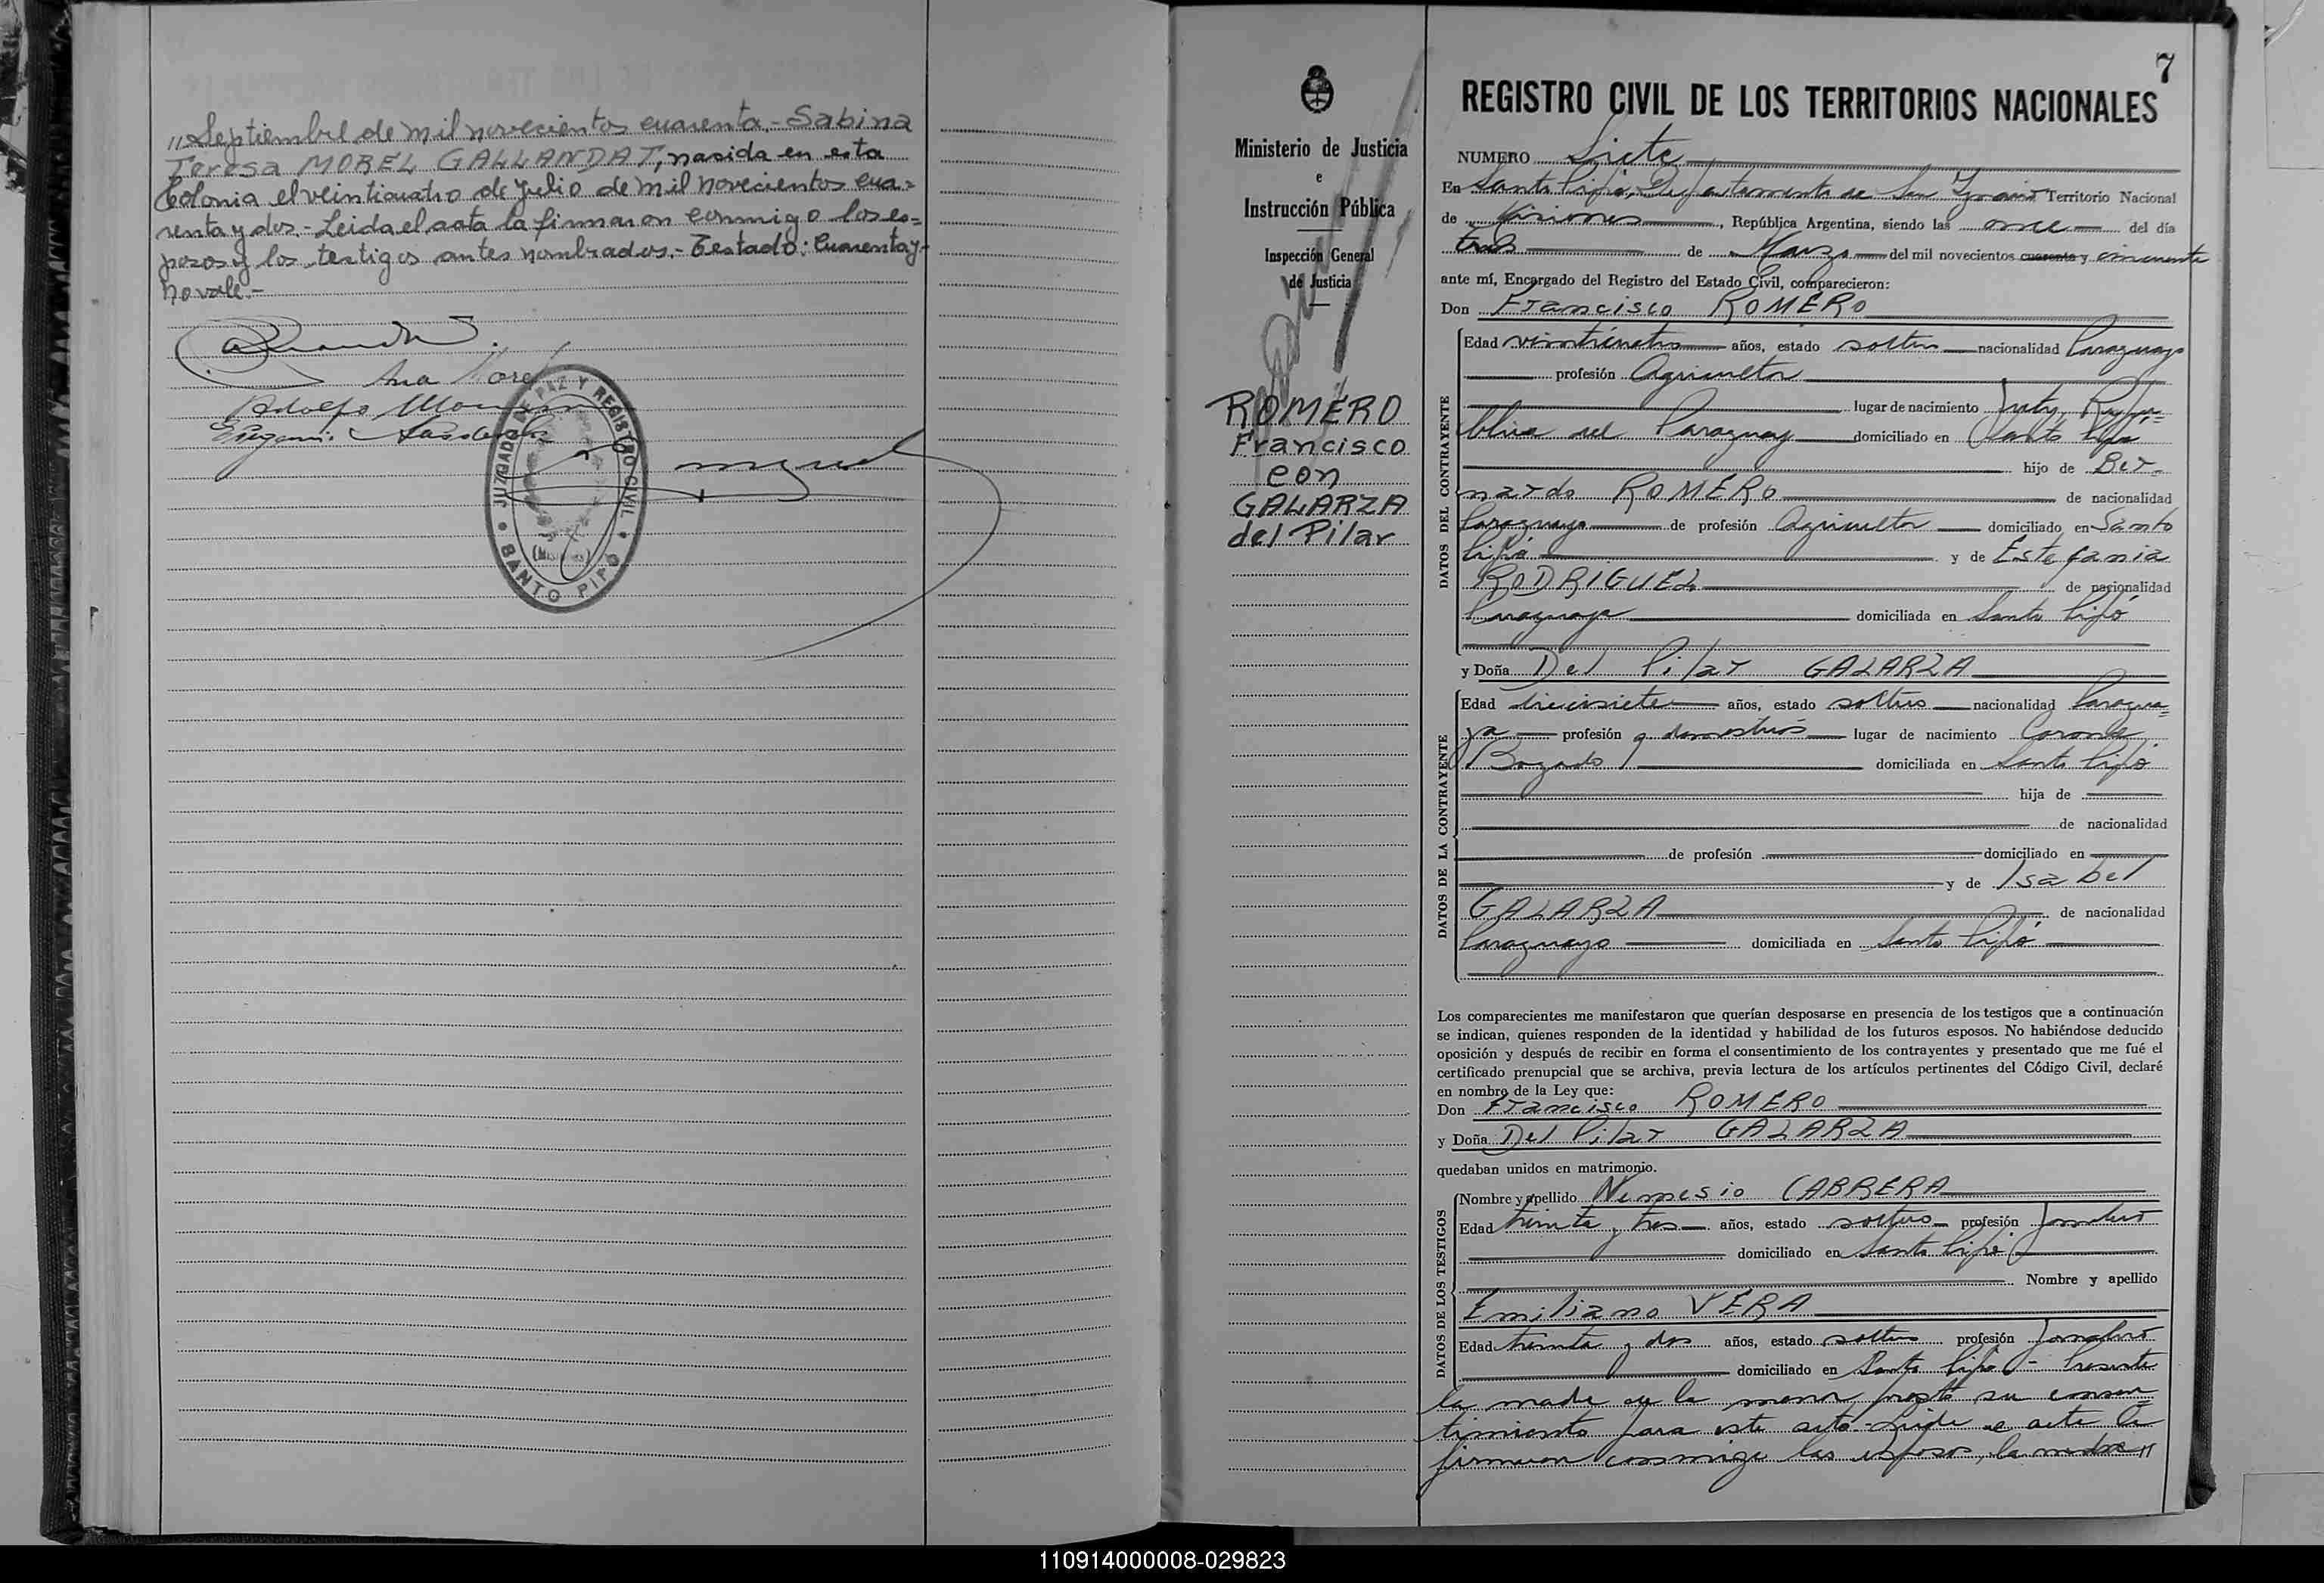 " Septiembre de mil novecientos cuarenta.- Sabina
Teresa MOREL GALLANDAT, nasida en esta
Colonia el veinticuatro de Julio de mil novecientos cua=
renta y dos.- Leida el acta la firmaron conmigo los es=
posos y los testigos antes nombrados.- Testado: Cuarenta y-
no vale.-
Ana Morel
Adolfo
JUZGADO DE PAZ Y REGISTRO CIVIL
SANTO PIPO
7
Ministerio de Justicia
e
Instrucción Pública
Inspección General
de Justicia
ROMERO
Francisco
con
GALARZA
del Pilar
REGISTRO CIVIL DE LOS TERRITORIOS NACIONALES
NUMERO Siete
En Santo Pipó, Departamento de San Ignacio Territorio Nacional
de Misiones, República Argentina, siendo las once del día
tres de Marzo del mil novecientos cuarenta y cincuenta
ante mí, Encargado del Registro del Estado Civil, comparecieron:
Don Francisco ROMERO
DATOS DEL CONTRAYENTE
Edad veinticuatro años, estado soltero nacionalidad Paraguayo
profesión Agricultor
lugar de nacimiento Yuty, Repú=
blica del Paraguay domiciliado en Santo Pipó
hijo de Ber-
nardo ROMERO de nacionalidad
Paraguayo de profesión Agricultor domiciliado en Santo
Pipó y de Estefania
RODRIGUEZ de nacionalidad
Paraguaya domiciliada en Santo Pipó
y Doña Del Pilar GALARZA
DATOS DE LA CONTRAYENTE
Edad diecisiete años, estado soltera nacionalidad Paragua=
ya profesión q. domésticos lugar de nacimiento Coronel
Bogado domiciliada en Santo Pipó
hija de
de nacionalidad
de profesión domiciliado en
y de Isabel
GALARZA de nacionalidad
Paraguaya domiciliada en Santo Pipó
Los comparecientes me manifestaron que querían desposarse en presencia de los testigos que a continuación
se indican, quienes responden de la identidad y habilidad de los futuros esposos. No habiéndose deducido
oposición y después de recibir en forma el consentimiento de los contrayentes y presentado que me fué el
certificado prenupcial que se archiva, previa lectura de los artículos pertinentes del Código Civil, declaré
en nombre de la Ley que:
Don Francisco ROMERO
y Doña Del Pilar GALARZA
quedaban unidos en matrimonio.
DATOS DE LOS TESTIGOS
Nombre y apellido Nemesio CABRERA
Edad treinta y tres años, estado soltero profesión Jornalero
domiciliado en Santo Pipó
Nombre y apellido
Emiliano VERA
Edad treinta y dos años, estado soltero profesión Jornalero
domiciliado en Santo Pipó - Presente
la madre de la menor prestó su consen=
timiento para este acto.- Leida el acta la
firmaron conmigo los esposos, la madre "
110914000008-029823